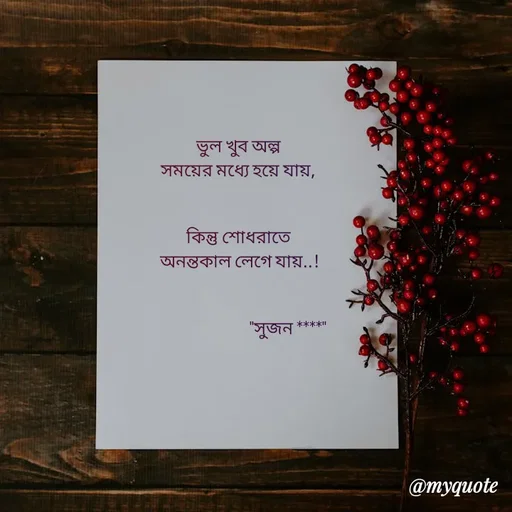 ভুল খুব অল্প
সময়ের মধ্যে হয়ে যায়,
কিন্তু শোধরাতে
অনন্তকাল লেগে যায়..!
"সুজন ****"
@myquote